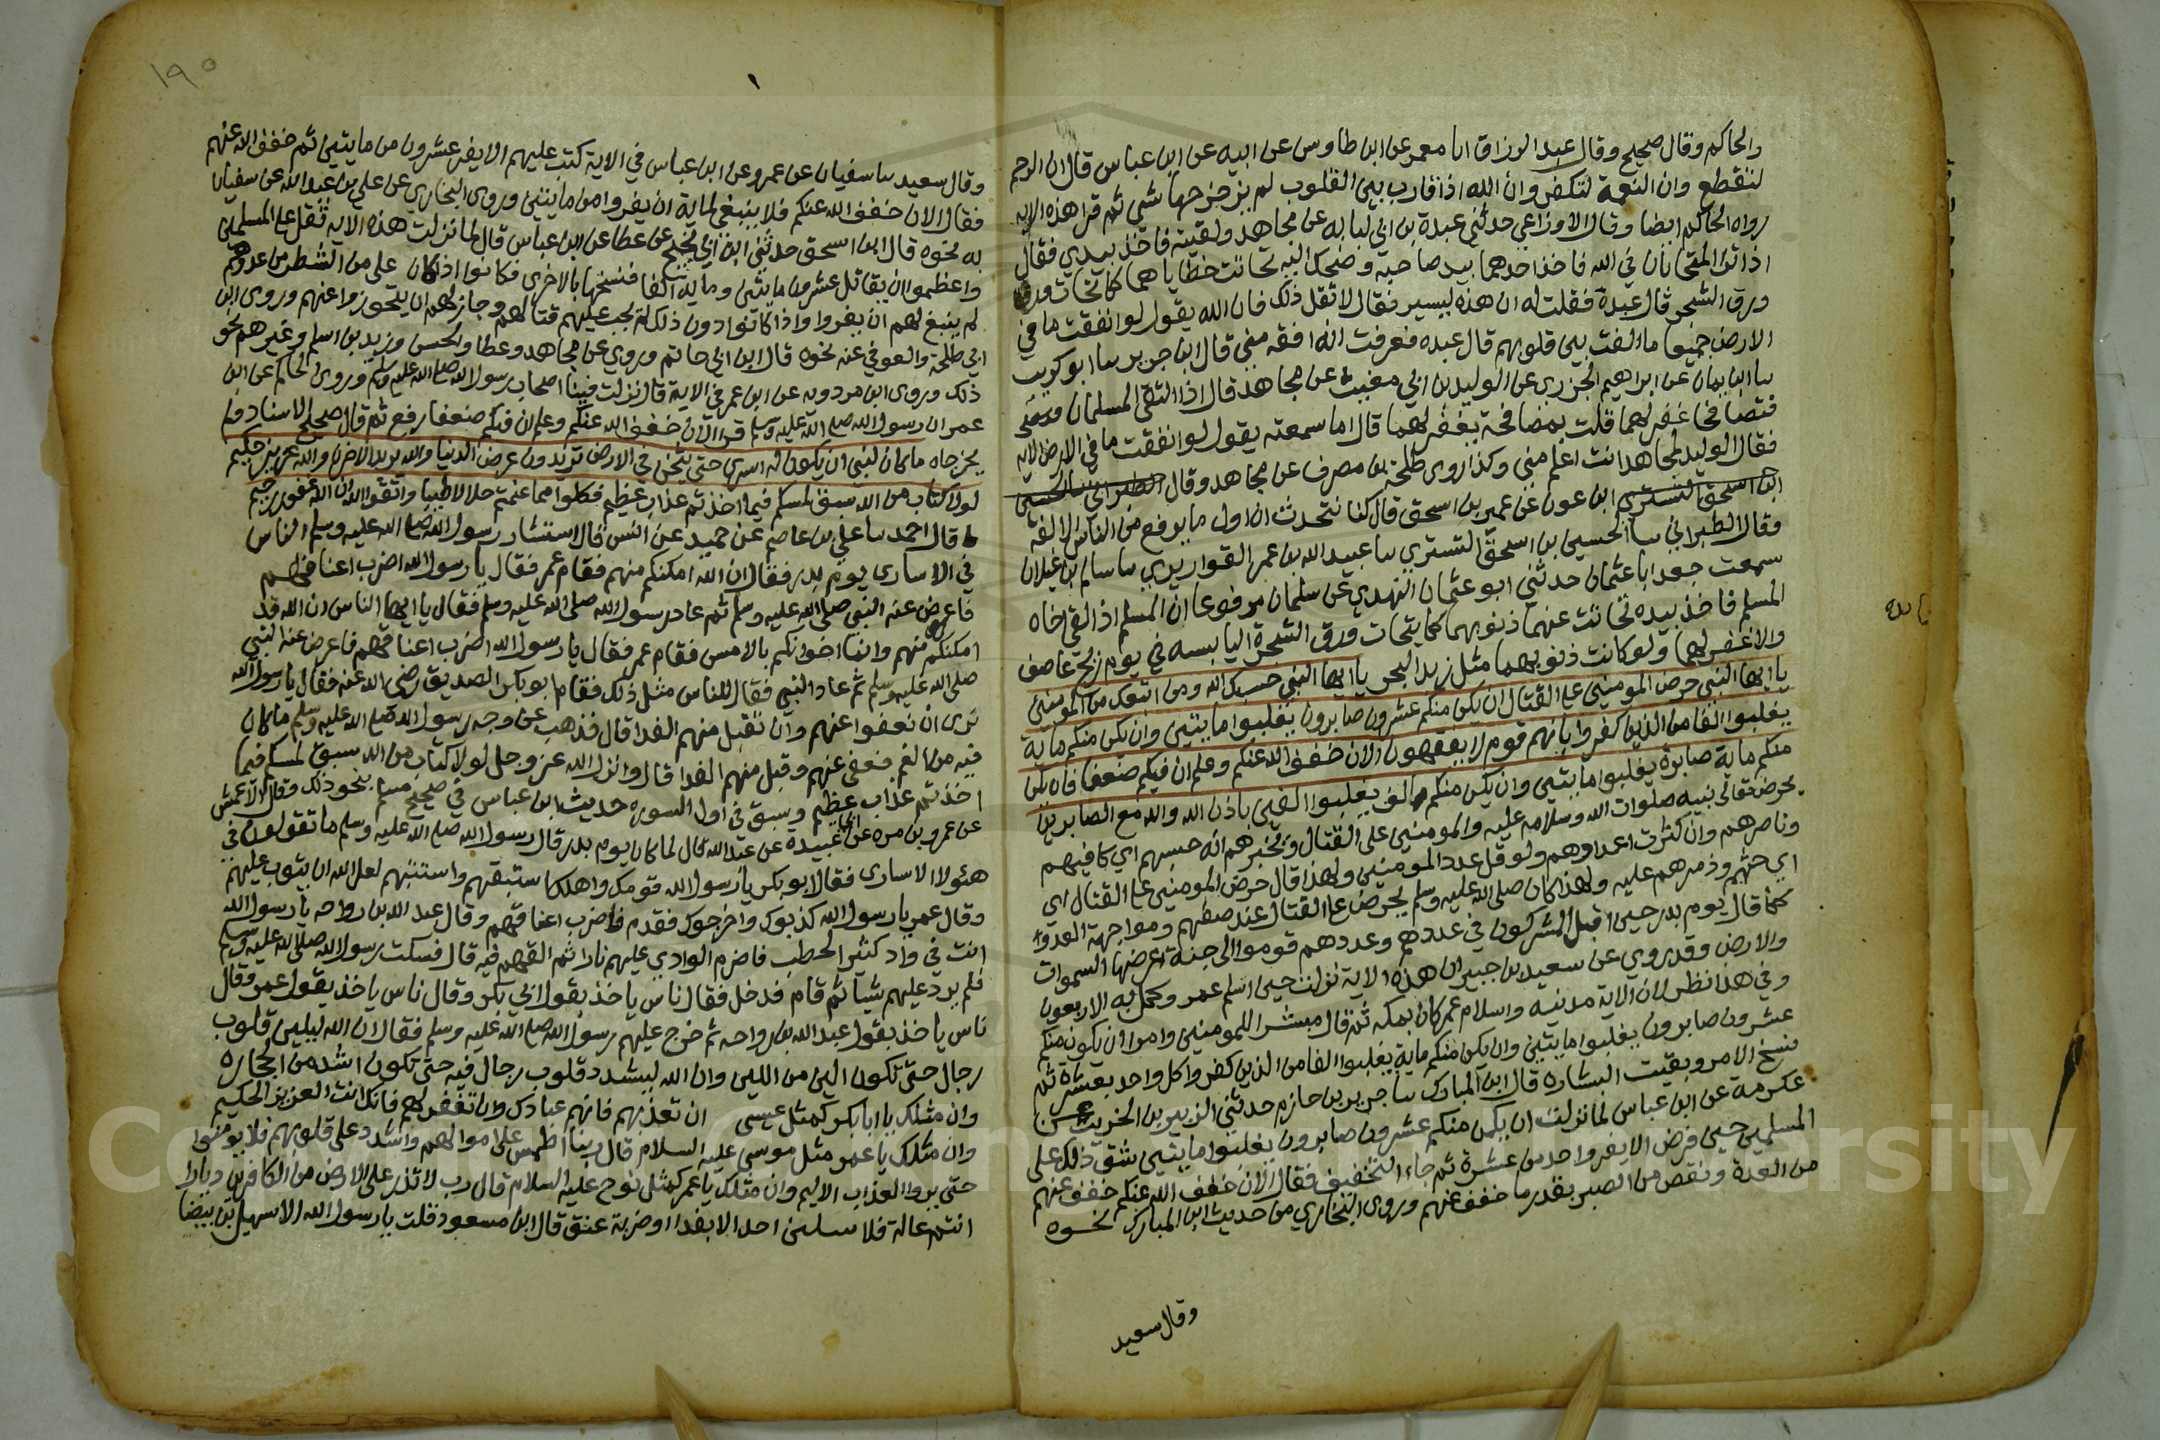 والحاكم وقال صحيح وقال عبد الرزاق انا معمر عن ابن طاوس عن ابيه عن ابن عباس قال ان الرحم
لتقطع وان النعمة لتكفر وان الله اذا قارب بين القلوب لم يزحزحها شي ثم قرا هذه الايه
رواه الحاكم ايضا وقال الاوزاعي حدثني عبدة بن ابي لبابه عن مجاهد ولقيته فاخذ بيدي فقال
اذا تراا المتحابان في الله فاخذ احدهما بيد صاحبه وضحك اليه تحاتت خطاياهما كما تحات ورق
ورق الشجر قال عبدة فقلت له ان هذه ليسير فقال لا تقل ذلك فان الله يقول لو انفقت ما في
الارض جميعا ما الفت بين قلوبهم قال عبده فعرفت انه افقه مني قال ابن جرير سا ابو كريب
سا ابن يمان عن ابراهيم الجزري عن الوليد بن ابي مغيث عن مجاهد قال اذا التقى المسلمان
فتصافحا غفر لهما قلت بمصافحة يغفر لهما قال اما سمعته يقول لو انفقت ما في الارض الايه
فقال الوليد لمجاهد انت اعلم مني وكذا روى طلحة بن مصرف عن مجاهد وقال الطبراني سا الحسين
ابن اسحق التستري ابن عون عن عمير بن اسحق قال كنا نتحدث ان اول ما يرفع من الناس الالفة
وقال الطبراني سا الحسين بن اسحق التستري سا عبيد الله بن عمر القواريري سا سالم بن غيلان
سمعت جعدا ابا عثمان حدثني ابو عثمان النهدي عن سلمان مرفوعا ان المسلم اذا لقي اخاه
المسلم فاخذ بيده تحاتت عنهما ذنوبهما كما يتحات ورق الشجرة اليابسه في يوم ريح عاصف
والا غفر لهما ولو كانت ذنوبهما مثل زبد البحر يا ايها النبي حسبك الله ومن اتبعك من المومنين
يا ايها النبي حرض المومنين على القتال ان يكن منكم عشرون صابرون يغلبوا مايتين وان يكن منكم ماية
يغلبوا الفا من الذين كفروا بانهم قوم لا يفقهون الان خفف الله عنكم وعلم ان فيكم ضعفا فان يكن
منكم ماية صابرة يغلبوا مايتين وان يكن منكم الف يغلبوا الفين باذن الله والله مع الصابرين
يحرض تعالى نبيه صلوات الله وسلامه عليه والمومنين على القتال ويخبرهم انه حسبهم اي كافيهم
وناصرهم وان كثرت اعداوهم ولو قل عدد المومنين ولهذا قال حرض المومنين على القتال اي
اي حثهم وذمرهم عليه ولهذا كان صلى الله عليه وسلم يحرض على القتال عند صفهم ومواجهة العدو
كما قال يوم بدر حين اقبل المشركون في عددهم وعددهم قوموا الى جنة عرضها السموات
والارض وقد روي عن سعيد بن جبير ان هذه الاية نزلت حين اسلم عمر وكمل به الاربعون
وفي هذا نظر لان الاية مدنيه واسلام عمر كان بمكه ثم قال مبشرا للمومنين وامرا ان يكن منكم
عشرون صابرون يغلبوا مايتين وان يكن منكم ماية يغلبوا الفا من الذين كفروا كل واحد بعشرة ثم
نسخ الامر وبقيت البشاره قال ابن المبارك سا جرير بن حازم حدثني الزبير بن الخريت عن
عكرمة عن ابن عباس لما نزلت ان يكن منكم عشرون صابرون يغلبوا مايتين شق ذلك على
المسلمين حين فرض الا يفر واحد من عشرة ثم جاء التخفيف فقال الان خفف الله عنكم خفف عنهم
من العدة ونقص من الصبر بقدر ما خفف عنهم وروى البخاري من حديث ابن المبارك نحوه
وقال سعيد
١٩٠
وقال سعيد سا سفيان عن عمرو عن ابن عباس في الاية كتب عليهم الا يفر عشرون من مايتين ثم خفف الله عنهم
فقال الان خفف الله عنكم فلا ينبغي لماية ان يفروا من مايتين وروى البخاري عن علي بن عبد الله عن سفيان
به نحوه قال ابن اسحق حدثني ابن ابي نجيح عن عطا عن ابن عباس قال لما نزلت هذه الايه ثقل على المسلمين
واعظموا ان يقاتل عشرون مايتين وماية الفا فنسخها بالاخرى فكانوا اذا كان على من الشطر من عدوهم
لم ينبغ لهم ان يفروا واذا كانوا دون ذلك لم يجب عليهم قتالهم وجاز لهم ان يتحوزوا عنهم وروى ابن
ابي طلحة والعوفي عنه نحوه قال ابن ابي حاتم وروي عن مجاهد وعطا والحسن وزيد بن اسلم وغيرهم نحو
ذلك وروى ابن مردويه عن ابن عمر في الاية قال نزلت فينا اصحاب رسول الله صلى الله عليه وسلم وروى الحاكم عن ابن
عمر ان رسول الله صلى الله عليه وسلم قرا الان خفف الله عنكم وعلم ان فيكم ضعفا رفع ثم قال صحيح الاسناد ولم
يخرجاه ما كان لنبي ان يكون له اسرى حتى يثخن في الارض تريدون عرض الدنيا والله يريد الاخرة والله عزيز حكيم
لولا كتاب من الله سبق لمسكم فيما اخذتم عذاب عظيم فكلوا مما غنمتم حلالا طيبا واتقوا الله ان الله غفور رحيم
قال احمد سا علي بن عاصم عن حميد عن انس قال استشار رسول الله صلى الله عليه وسلم الناس
في الاسارى يوم بدر فقال ان الله امكنكم منهم فقام عمر فقال يا رسول الله اضرب اعناقهم
فاعرض عنه النبي صلى الله عليه وسلم ثم عاد رسول الله صلى الله عليه وسلم فقال يا ايها الناس ان الله قد
امكنكم منهم وانما اخوانكم بالامس فقام عمر فقال يا رسول الله اضرب اعناقهم فاعرض عنه النبي
صلى الله عليه وسلم ثم عاد النبي فقال للناس مثل ذلك فقام ابو بكر الصديق رضي الله عنه فقال يا رسول الله
نرى ان نعفوا عنهم وان نقبل منهم الفدا قال فذهب عن وجه رسول الله صلى الله عليه وسلم ما كان
فيه من الغم فعفى عنهم وقبل منهم الفدا قال وانزل الله عز وجل لولا كتاب من الله سبق لمسكم فيما
اخذتم عذاب عظيم وسبق في اول السوره حديث ابن عباس في صحيح مسلم بنحو ذلك وقال الاعمش
عن عمرو بن مره عن ابي عبيدة عن عبد الله قال لما كان يوم بدر قال رسول الله صلى الله عليه وسلم ما تقولون في
هئولا الاسارى فقال ابو بكر يا رسول الله قومك واهلك استبقهم واستتبهم لعل الله ان يتوب عليهم
وقال عمر يا رسول الله كذبوك واخرجوك فقدم فاضرب اعناقهم وقال عبد الله بن رواحه يا رسول الله
انت في واد كثير الحطب فاضرم الوادي عليهم نارا ثم القهم فيه قال فسكت رسول الله صلى الله عليه وسلم
فلم يرد عليهم شيا ثم قام فدخل فقال ناس ياخذ بقول ابي بكر وقال ناس ياخذ بقول عمر وقال
ناس ياخذ بقول عبد الله بن رواحه ثم خرج عليهم رسول الله صلى الله عليه وسلم فقال ان الله ليلين قلوب
رجال حتى تكون الين من اللبن وان الله ليشدد قلوب رجال فيه حتى تكون اشد من الحجاره
وان مثلك يا ابا بكر كمثل عيسى ان تعذبهم فانهم عبادك وان تغفر لهم فانك انت العزيز الحكيم
وان مثلك يا عمر مثل موسى عليه السلام قال ربنا اطمس على اموالهم واشدد على قلوبهم فلا يومنوا
حتى يروا العذاب الاليم وان مثلك يا عمر كمثل نوح عليه السلام قال رب لا تذر على الارض من الكافرين ديارا
انتم عالة فلا احد الا بفدا او ضربة عنق قال ابن مسعود قلت يا رسول الله الا سهيل بن بيضا